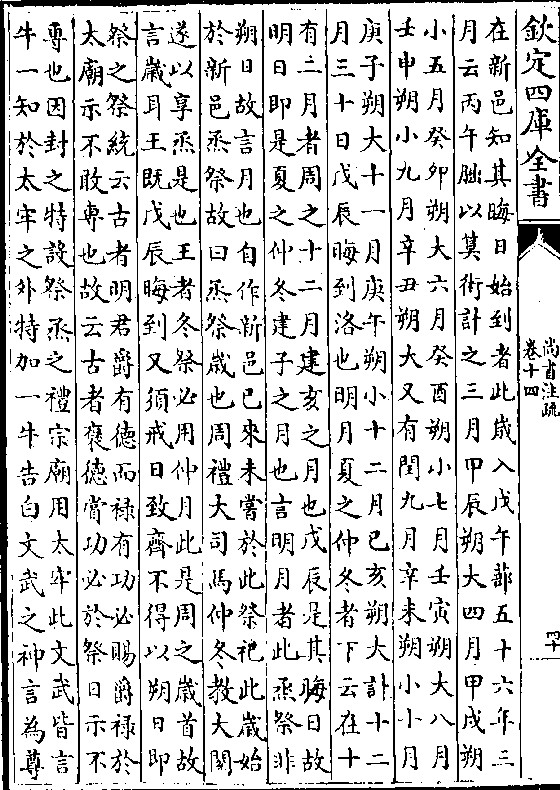 欽定四庫全書
尚書注疏
卷十四
四十
在新邑知其晦日始到者此歲入戊午蔀五十六年三
月云丙午朏以算術計之三月甲辰朔大四月甲戌朔
小五月癸卯朔大六月癸酉朔小七月壬寅朔大八月
壬申朔小九月辛丑朔大又有閏九月辛未朔小十月
庚子朔大十一月庚午朔小十二月己亥朔大計十二
月三十日戊辰晦到洛也明月夏之仲冬者下云在十
有二月者周之十二月建亥之月也戊辰是其晦日故
明日即是夏之仲冬建子之月也言明月者此烝祭非
朔日故言月也自作新邑已來未嘗於此祭祀此歲始
於新邑烝祭故曰烝祭歲也周禮大司馬仲冬教大閱
遂以享烝是也王者冬祭必用仲月此是周之歲首故
言歲耳王既戊辰晦到又須戒日致齊不得以朔日即
祭之祭統云古者明君爵有德而祿有功必賜爵祿於
太廟示不敢專也故云古者褒德賞功必於祭日示不
專也因封之特設祭烝之禮宗廟用太牢此文武皆言
牛一知於太牢之外特加一牛告白文武之神言為尊